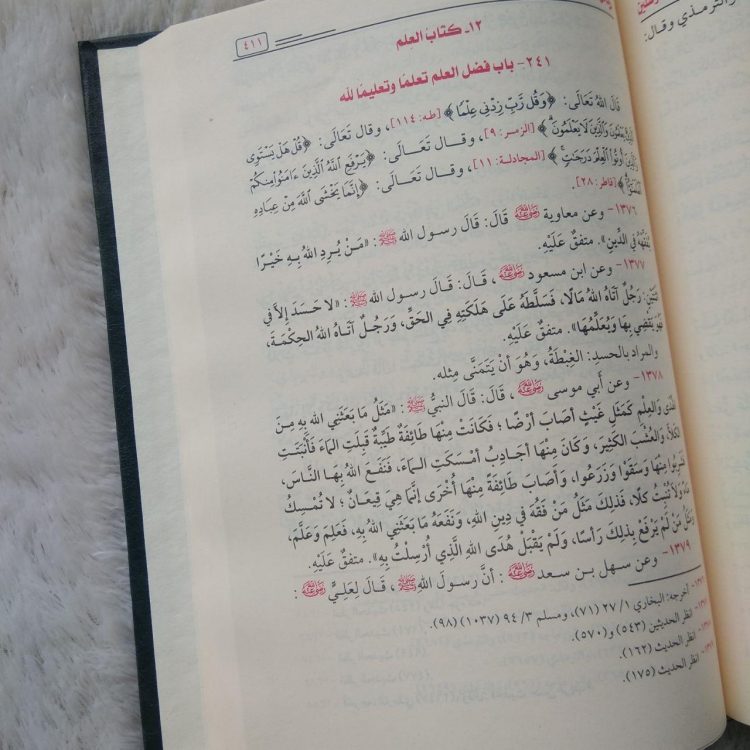 ٤١١
١٢- كتاب العلم
٢٤١- باب فضل العلم تعلمًا وتعليمًا لله
قَالَ اللهُ تَعَالَى: ﴿وَقُل رَّبِّ زِدْنِي عِلْمًا﴾ [طه: ١١٤]، وقال تَعَالَى: ﴿قُلْ هَلْ يَسْتَوِي
الَّذِينَ يَعْلَمُونَ وَالَّذِينَ لَا يَعْلَمُونَ﴾ [الزمر: ٩]، وقال تَعَالَى: ﴿يَرْفَعِ اللَّهُ الَّذِينَ ءَامَنُوا مِنكُمْ
وَالَّذِينَ أُوتُوا الْعِلْمَ دَرَجَٰتٍ﴾ [المجادلة: ١١]، وقال تَعَالَى: ﴿إِنَّمَا يَخْشَى اللَّهَ مِنْ عِبَادِهِ
الْعُلَمَٰٓؤُا﴾ [فاطر: ٢٨].
١٣٧٦- وعن معاوية رضي الله عنه قَالَ: قَالَ رسول الله ﷺ: «مَنْ يُرِدِ اللهُ بِهِ خَيْرًا
يُفَقِّهْهُ فِي الدِّينِ». متفقٌ عَلَيْهِ.
١٣٧٧- وعن ابن مسعود رضي الله عنه، قَالَ: قَالَ رسول الله ﷺ: «لا حَسَدَ إلاَّ في
اثْنَتَيْنِ: رَجُلٌ آتَاهُ اللهُ مَالًا، فَسَلَّطَهُ عَلَى هَلَكَتِهِ فِي الحَقِّ، وَرَجُلٌ آتَاهُ اللهُ الحِكْمَةَ،
فَهُوَ يَقْضِي بِهَا وَيُعَلِّمُهَا». متفقٌ عَلَيْهِ.
والمراد بالحسدِ: الغِبْطَةُ، وَهُوَ أنْ يَتَمَنَّى مِثله.
١٣٧٨- وعن أَبي موسى رضي الله عنه، قَالَ: قَالَ النبيُّ ﷺ: «مَثَلُ مَا بَعَثَنِي الله بِهِ مِنَ
الهُدَى وَالعِلْمِ كَمَثَلِ غَيْثٍ أصَابَ أرْضًا؛ فَكَانَتْ مِنْهَا طَائِفَةٌ طَيِّبَةٌ قَبِلَتِ المَاءَ، فَأَنْبَتَتِ
الكَلأَ، وَالعُشْبَ الكَثِيرَ، وَكَانَ مِنْهَا أجَادِبُ أمْسَكَتِ المَاءَ، فَنَفَعَ اللهُ بِهَا النَّاسَ،
فَشَرِبُوا مِنْهَا وَسَقَوْا وَزَرَعُوا، وَأَصَابَ طَائِفَةً مِنْهَا أُخْرَى إنَّمَا هِيَ قِيعَانٌ؛ لا تُمْسِكُ
مَاءً وَلا تُنْبِتُ كَلأً، فَذلِكَ مَثَلُ مَنْ فَقُهَ فِي دِينِ اللهِ، وَنَفَعَهُ مَا بَعَثَنِي اللهُ بِهِ، فَعَلِمَ وَعَلَّمَ،
وَمَثَلُ مَنْ لَمْ يَرْفَعْ بِذلِكَ رَأسًا، وَلَمْ يَقْبَلْ هُدَى اللهِ الَّذِي أُرْسِلْتُ بِهِ». متفقٌ عَلَيْهِ.
١٣٧٩- وعن سهل بن سعد رضي الله عنه: أنَّ رسولَ اللهِ ﷺ، قَالَ لِعَلِيٍّ رضي الله عنه:
أخرجه: البخاري ١/ ٢٧ (٧١)، ومسلم ٣/ ٩٤ (١٠٣٧) (٩٨).
انظر الحديثين (٥٤٣) و(٥٧٠).
انظر الحديث (١٦٢).
انظر الحديث (١٧٥).
والترمذي وقال: